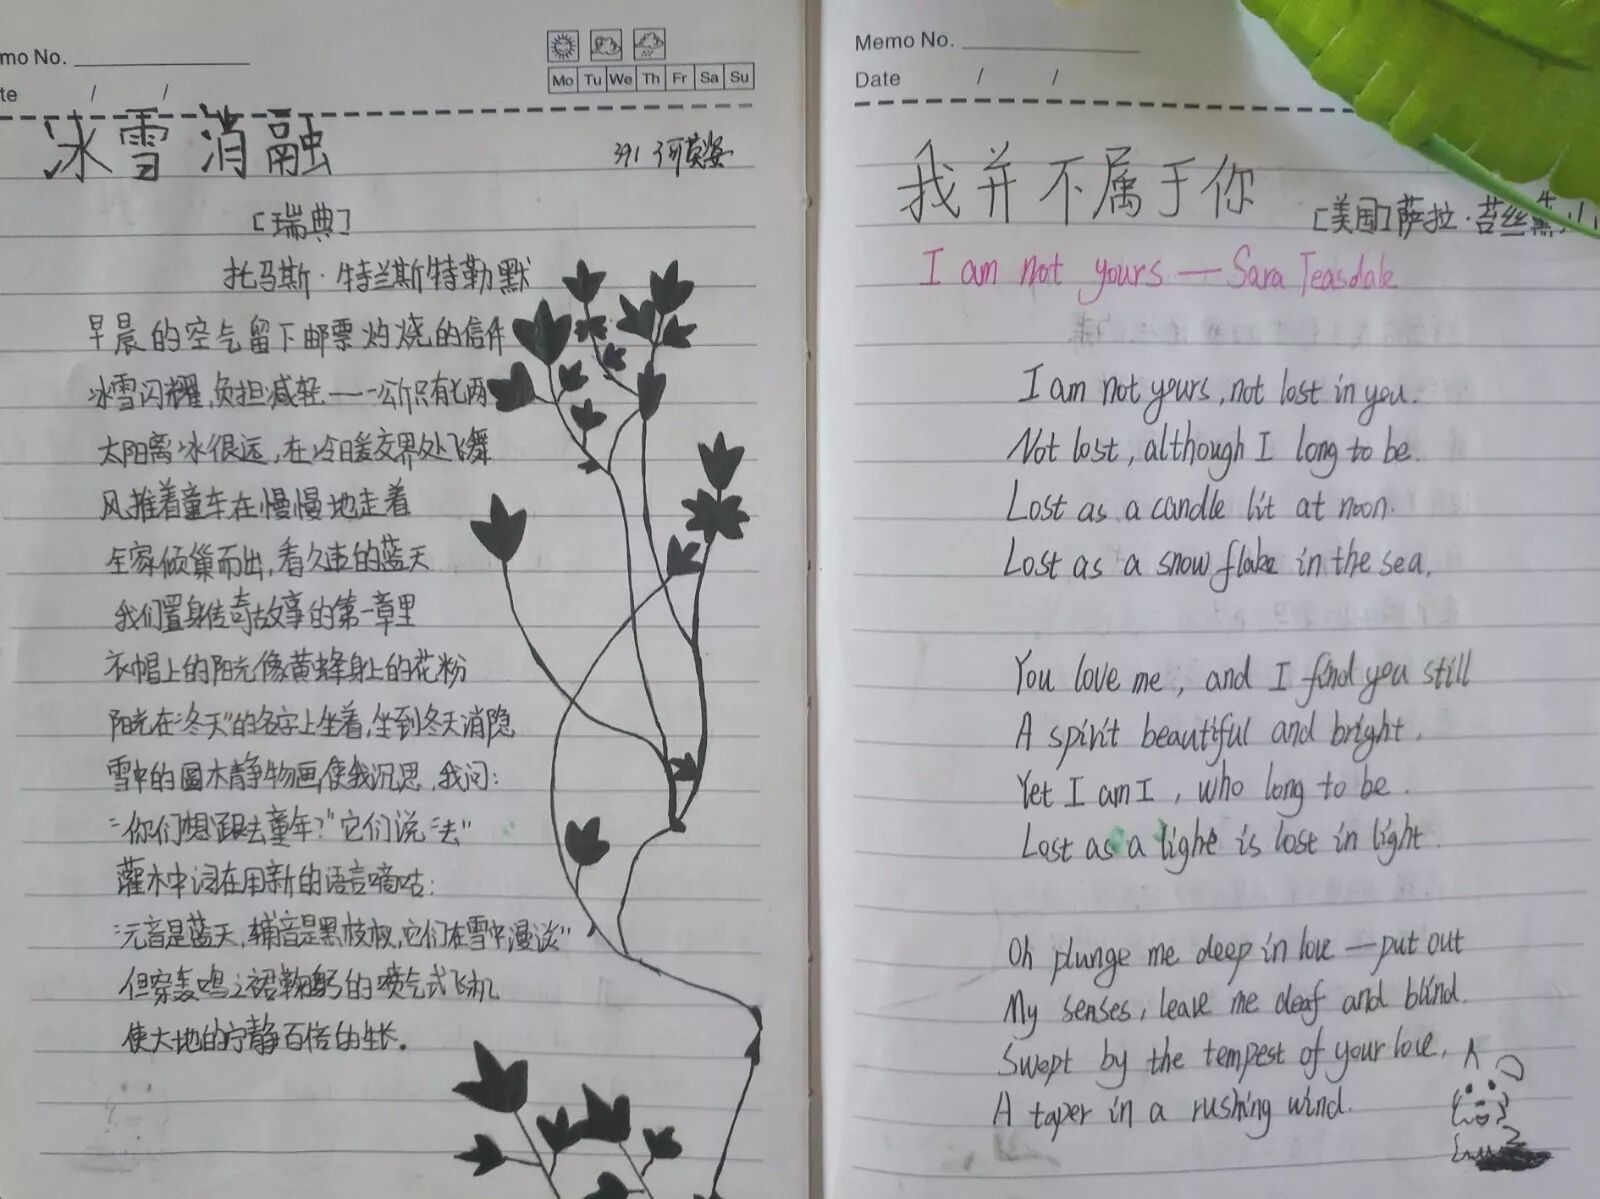 mo No.
te / /
Mo Tu We Th Fr Sa Su
冰雪消融
391
[瑞典]
托马斯·特兰斯特勒默
早晨的空气留下邮票灼烧的信件
冰雪闪耀,负担减轻——一公斤只有七两
太阳离冰很远,在冷暖交界处飞舞
风推着童车在慢慢地走着
全家倾巢而出,看久违的蓝天
我们置身传奇故事的第一章里
衣帽上的阳光像黄蜂身上的花粉
阳光在“冬天”的名字上坐着,坐到冬天消隐
雪中的圆木静物画使我沉思,我问:
“你们想跟去童年?”它们说“去”
灌木中词在用新的语言嘀咕:
“元音是蓝天,辅音是黑枝杈,它们在雪中漫谈”
但穿轰鸣之裙鞠躬的喷气式飞机
使大地的宁静百倍的生长。
Memo No.
Date / /
我并不属于你
[美国]萨拉·苔丝
I am not yours — Sara Teasdale
I am not yours, not lost in you.
Not lost, although I long to be.
Lost as a candle lit at noon.
Lost as a snow flake in the sea.
You love me, and I find you still
A spirit beautiful and bright,
Yet I am I, who long to be.
Lost as a light is lost in light.
Oh plunge me deep in love — put out
My senses, leave me deaf and blind.
Swept by the tempest of your love,
A taper in a rushing wind.